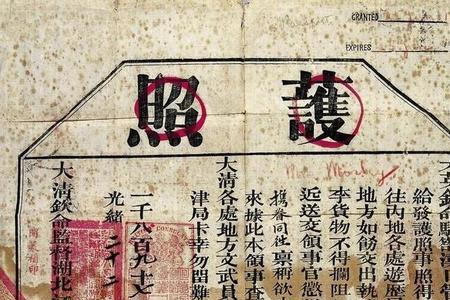 GRANTED
EXPIRES
護照
給發護照事照得
往內地各處遊歷
地方如飭交出執
李貨物不得攔阻
近送交領事官懲
稟稱欲
來據此本領事查
大清各處地方文武員
津局卡幸勿留難
一千八百九十七
光緒二十二
大清欽命監督湖北